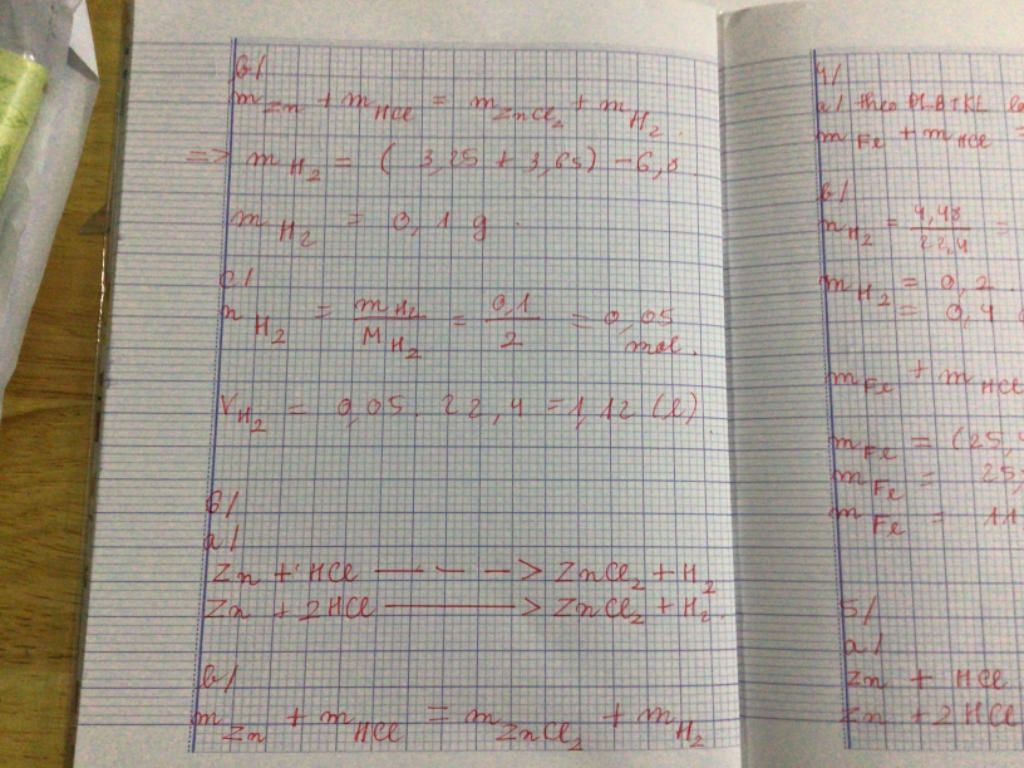 b/
m Zn + m HCl = m ZnCl₂ + m H₂.
=> m H₂ = ( 3,25 + 3,65) - 6,8
m H₂ = 0,1 g.
c/
n H₂ = m H₂ / M H₂ = 0,1 / 2 = 0,05 mol.
V H₂ = 0,05. 22,4 = 1,12 (l)
6/
a/
Zn + HCl - - - -> ZnCl₂ + H₂
Zn + 2HCl ———> ZnCl₂ + H₂.
b/
m Zn + m HCl = m ZnCl₂ + m H₂
4/
a/ theo ĐLBTKL
m Fe + m HCl =
b/
n H₂ = 4,48 / 22,4 =
m H₂ = 0,2.
= 0,4
m Fe + m HCl
m Fe = (25,4
m Fe = 25,
m Fe = 11
5/
a/
Zn + HCl
Zn + 2HCl